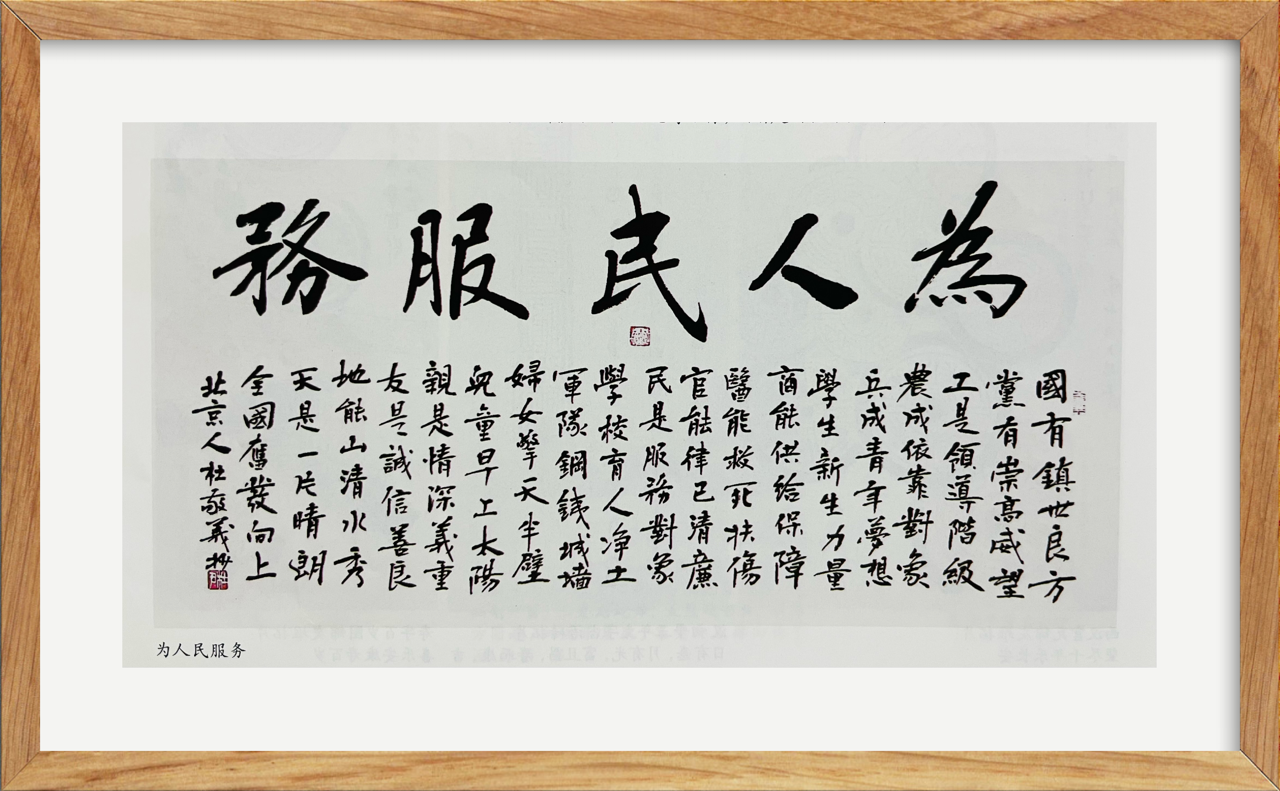 為人民服務
國有鎮世良方
黨有崇高威望
工是領導階級
農成依靠對象
兵成青年夢想
學生新生力量
商能供给保障
醫能救死扶傷
官能律己清廉
民是服務對象
學校育人净土
軍隊鋼銭城墙
婦女擎天半壁
兒童早上太陽
親是情深義重
友是誠信善良
地能山清水秀
天是一片晴朗
全國奮發向上
北京人杜敬義抄
为人民服务